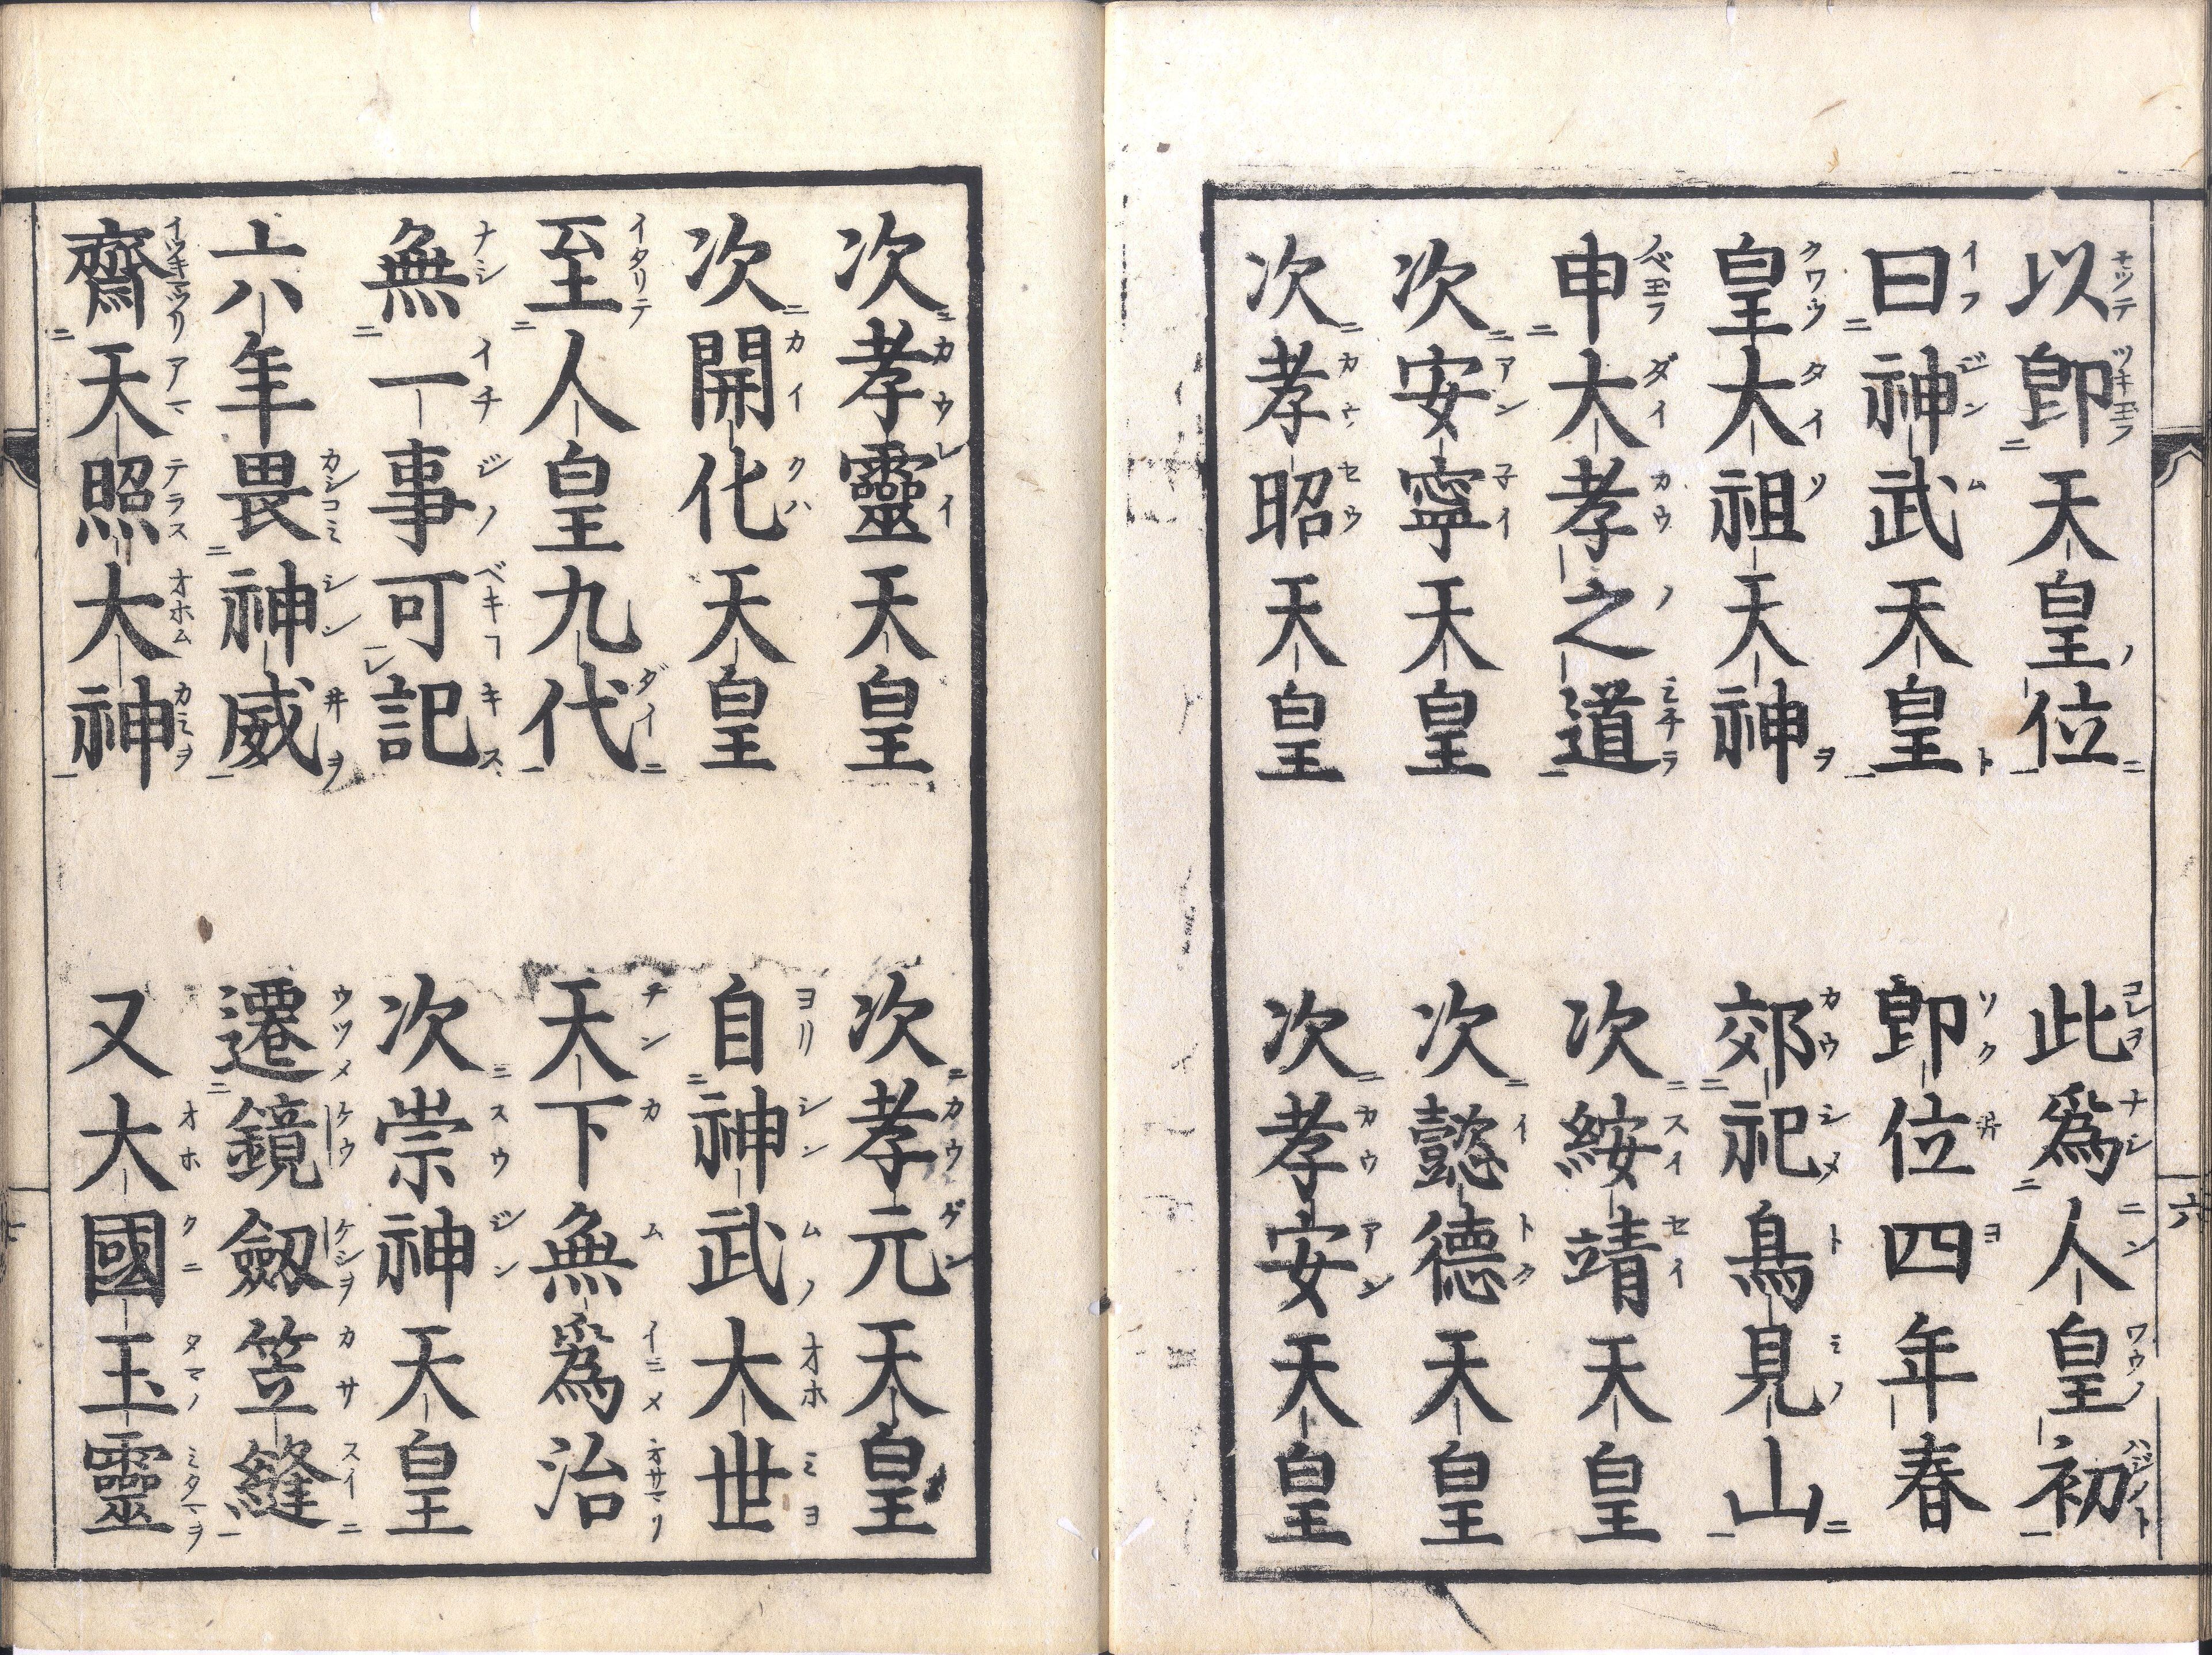 以卽天皇位
此爲人皇初
曰神武天皇
卽位四年春
皇大祖天神
郊祀鳥見山
申大孝之道
次綏靖天皇
次安寧天皇
次懿德天皇
次孝昭天皇
次孝安天皇
六
次孝靈天皇
次孝元天皇
次開化天皇
自神武大世
至人皇九代
天下無爲治
無一事可記
次崇神天皇
六年畏神威
遷鏡劔笠縫
齋天照大神
又大國玉靈